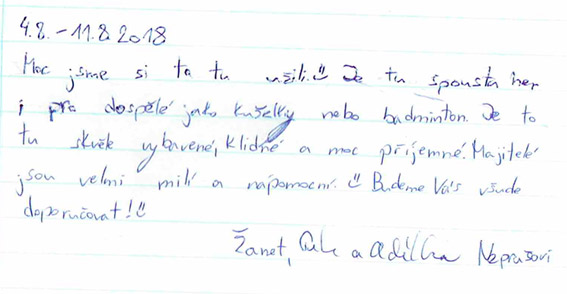 4.8.-11.8.2018
Moc jsme si to tu užili.☺ Je tu spousta her
i pro dospělé jako kuželky nebo badminton. Je to
tu skvěle vybavené, klidné a moc příjemné. Majitelé
jsou velmi milí a nápomocní. ☺ Budeme Vás všude
doporučovat!☺
Žanet, a Adélka Neprašovi